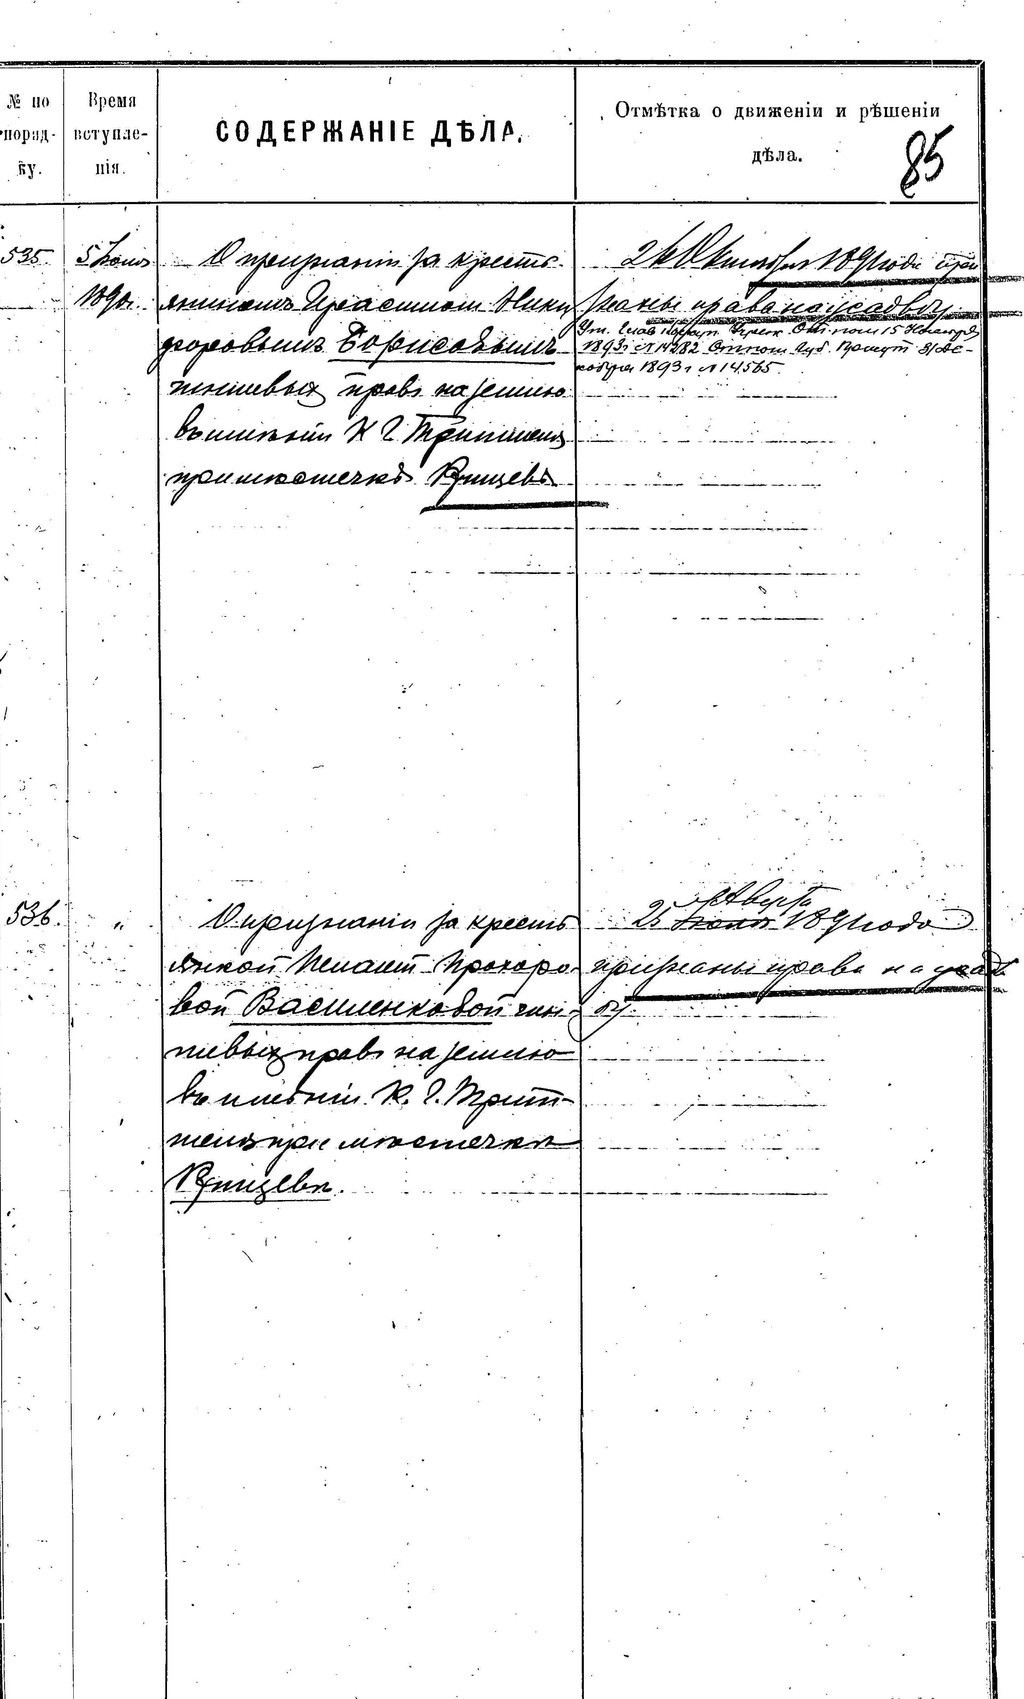 № по порядку.
Время вступленія.
СОДЕРЖАНІЕ ДѢЛА.
Отмѣтка о движеніи и рѣшеніи
дѣла.
85
535.
5 Іюня
1890г.
О признаніи за кресть
яниномъ Ники
форовымъ Борисовымъ
чиншевыхъ правъ на землю
въ имѣніи К. Г. Триттенъ
при мѣстечкѣ Кричевѣ
Октября 1891 года приз
наны права на усадьбу
15 Января
1893г. № 14282 Губ. Присут. 31 Де-
кабря 1893г. № 14565.
536.
"
О признаніи за кресть
янкой Прохоро
вой Василенковой чин
шевыхъ правъ на землю
въ имѣніи К. Г. Трит-
тенъ при мѣстечкѣ
Кричевѣ.
Августа
25 Іюня 1891 года
признаны права на усадь
бу.